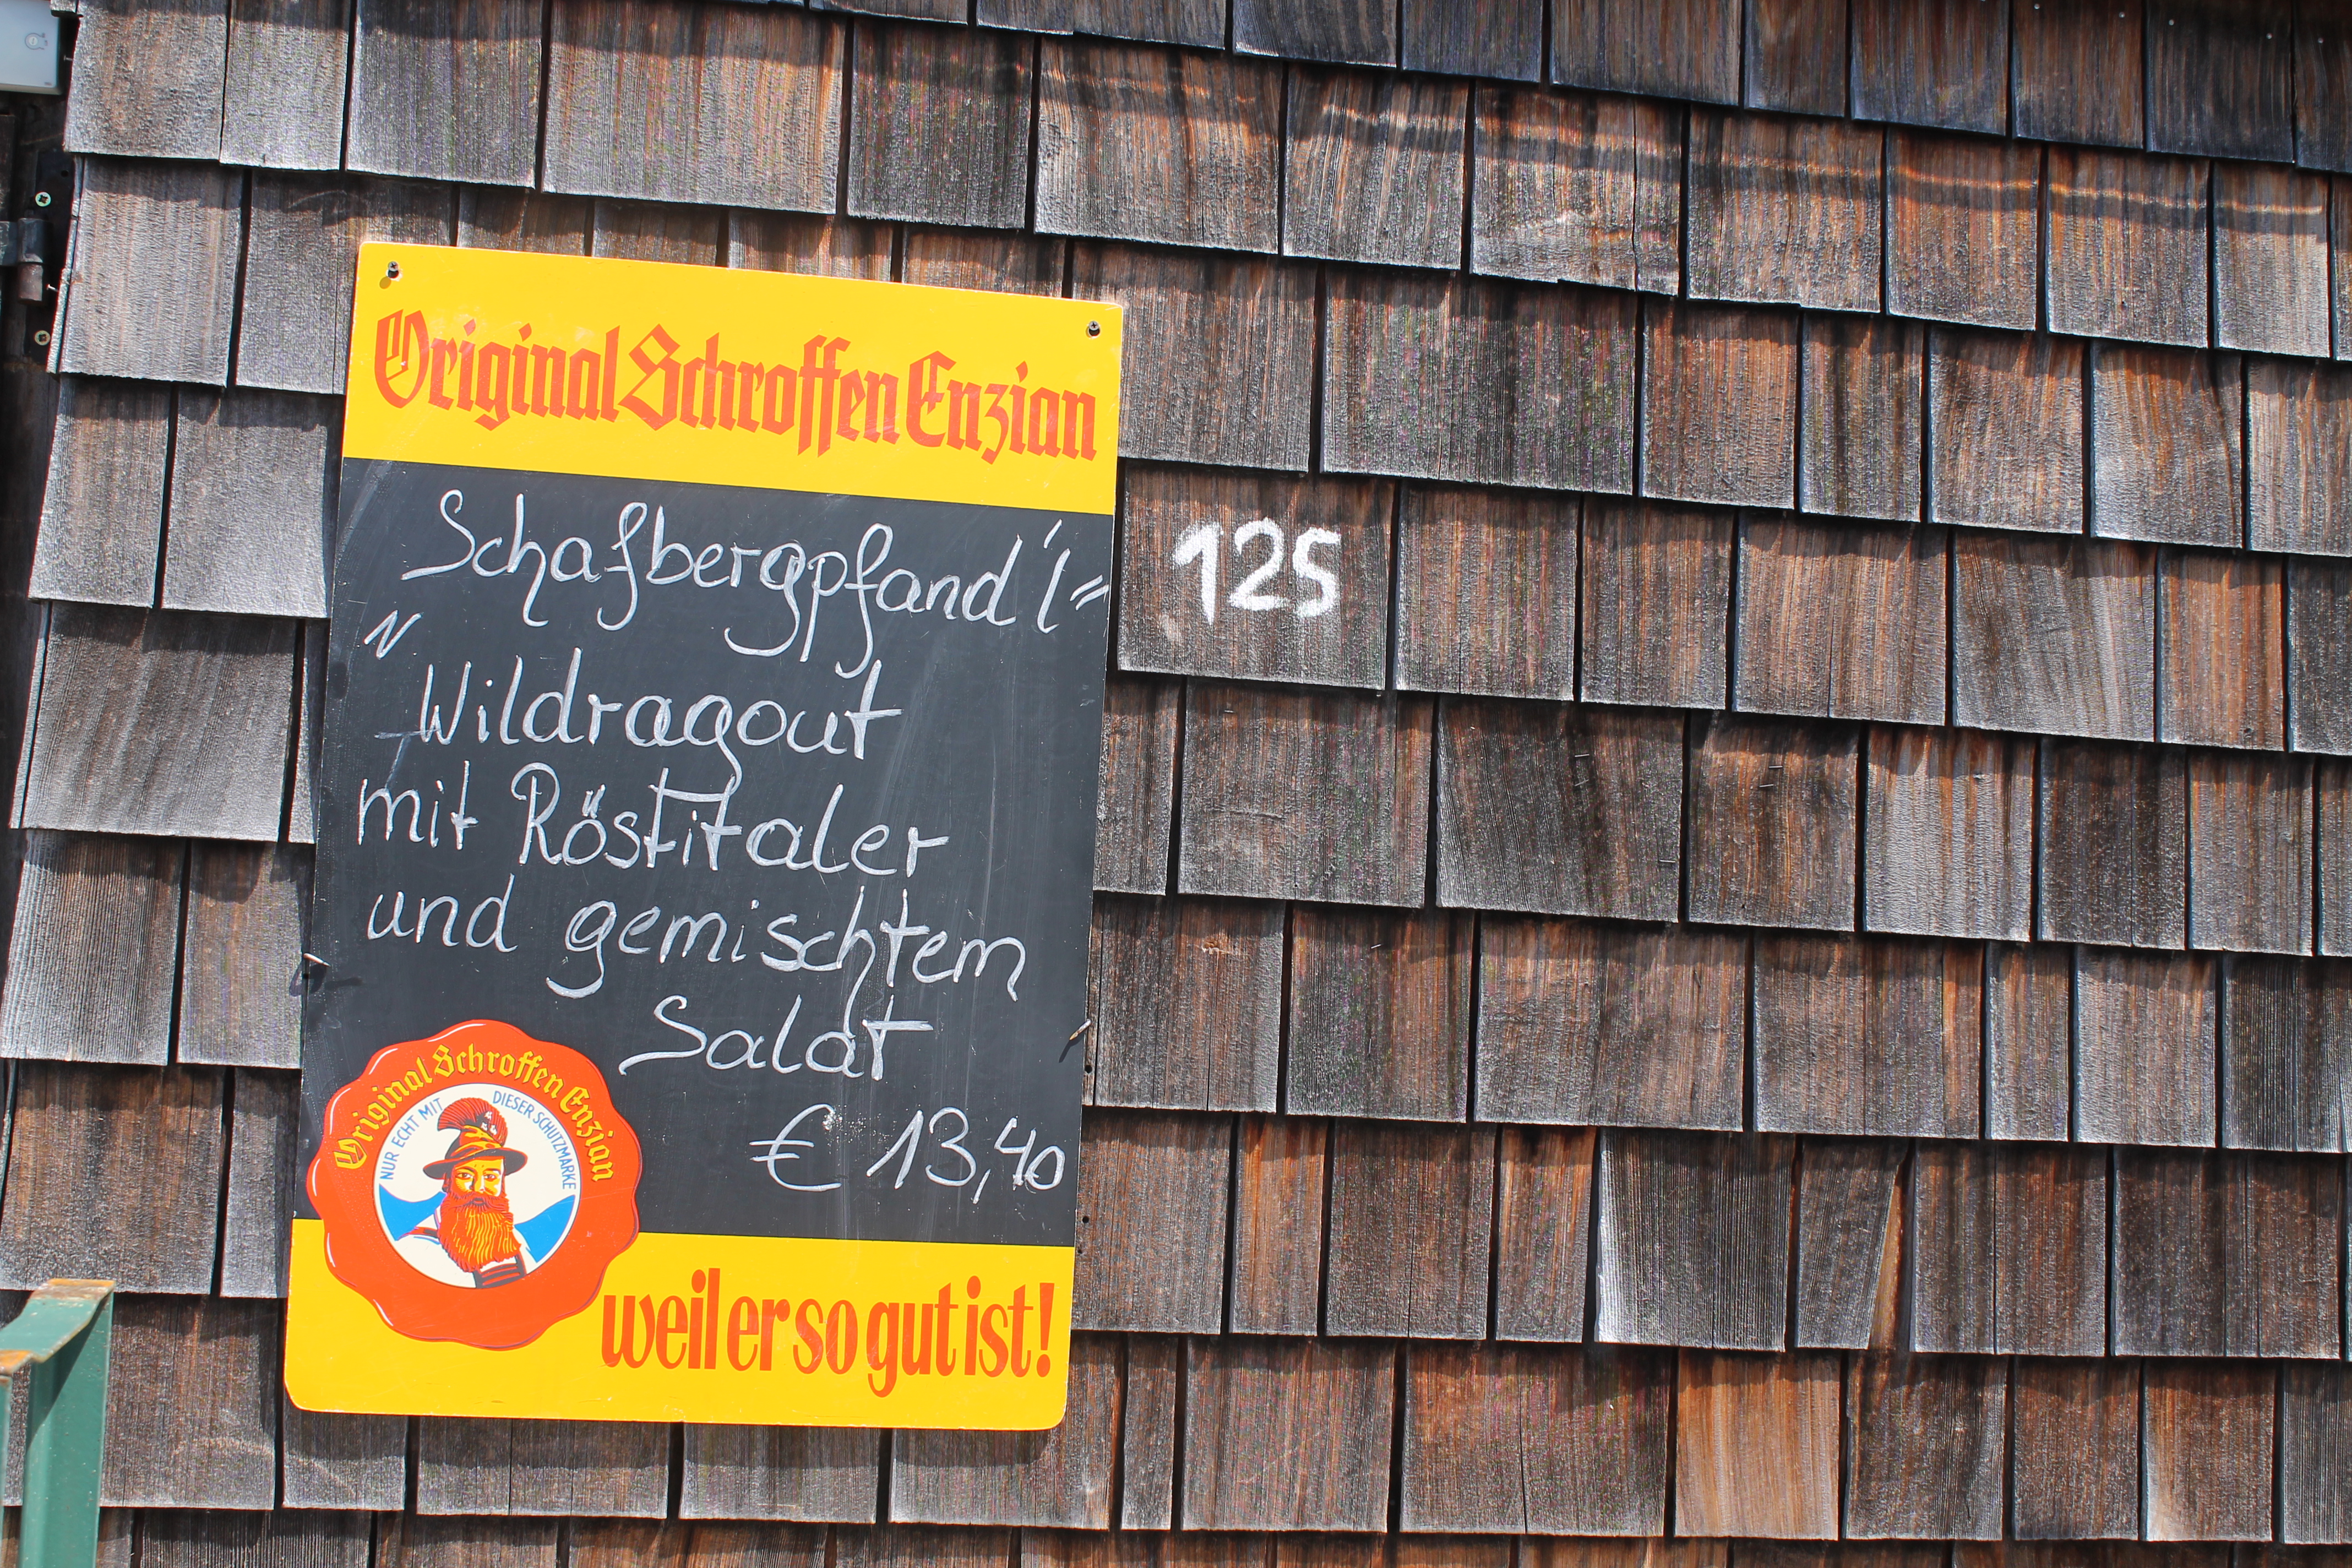 Original Schroffen Enzian
Schafbergpfand'l"
" Wildragout
mit Röstitaler
und gemischtem
Salat
€ 13,40
125
Original Schroffen Enzian
NUR ECHT MIT DIESER SCHUTZMARKE
weil er so gut ist!